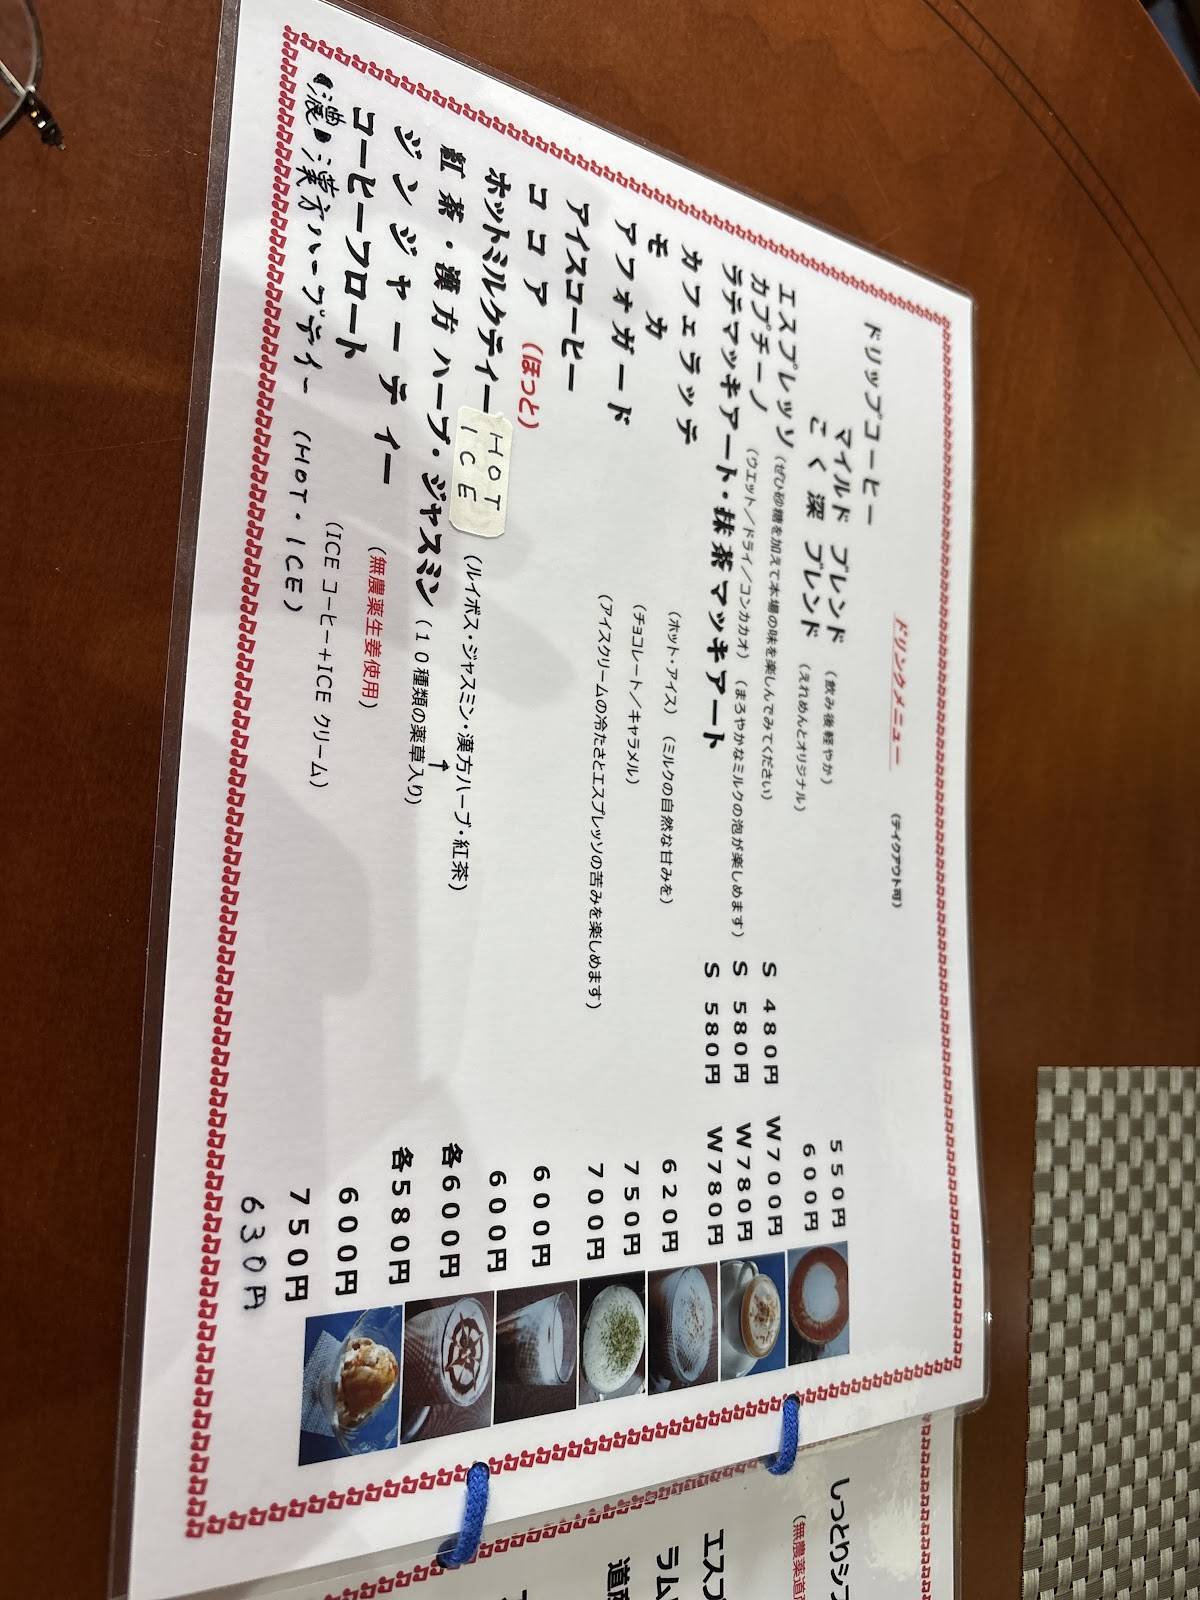 ドリンクメニュー (テイクアウト可)
ドリップコーヒー
マイルド ブレンド (飲み後軽やか) 550円
こく深 ブレンド (えれめんとオリジナル) 600円
エスプレッソ (ぜひ砂糖を加えて本場の味を楽しんでみてください) S 480円 W700円
カプチーノ (ウエット/ドライ/コンカカオ) (まろやかなミルクの泡が楽しめます) S 580円 W780円
ラテマッキアート・抹茶マッキアート S 580円 W780円
カフェラッテ (ホット・アイス) (ミルクの自然な甘みを) 620円
モカ (チョコレート/キャラメル) 750円
アフォガード (アイスクリームの冷たさとエスプレッソの苦みを楽しめます) 700円
アイスコーヒー 600円
ココア (ほっと) 600円
ホットミルクティー HOT ICE (ルイボス・ジャスミン・漢方ハーブ・紅茶) 各600円
紅茶・漢方ハーブ・ジャスミン (10種類の薬草入り) 各580円
↑
ジンジャーティー (無農薬生姜使用) 600円
コーヒーフロート (ICE コーヒー+ICE クリーム) 750円
濃 漢方ハーブティー (HOT・ICE) 630円
しっとりシフ
(無農薬道
エスプ
ラム
道産